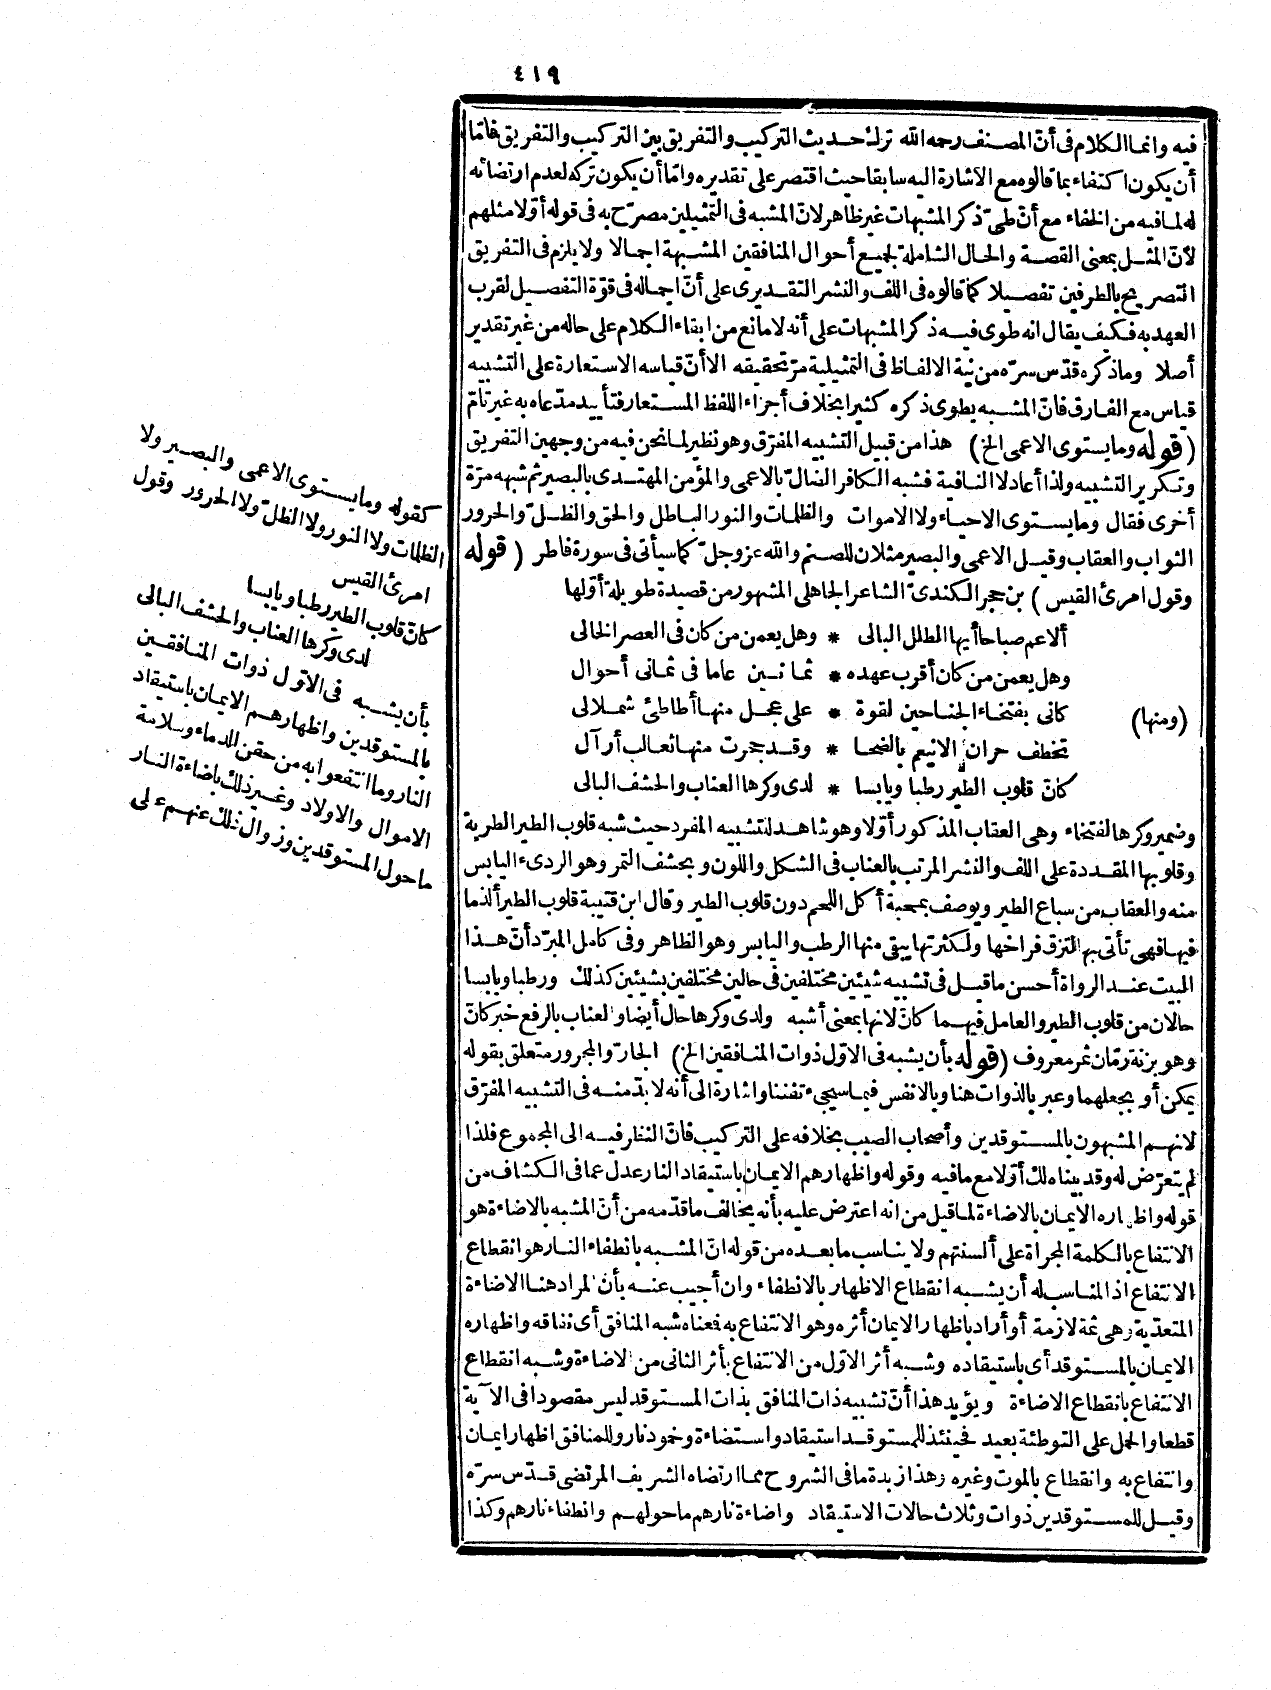 ٤١٩
فيه وانما الكلام فى أنّ المصنف رحمه الله ترك حديث التركيب والتفريق بين التركيب والتفريق فامّا
أن يكون اكتفاء بما قالوه مع الاشارة اليه سابقا حيث اقتصر على تقديره وامّا أن يكون تركه لعدم ارتضائه
له لما فيه من الخفاء مع أنّ طىّ ذكر المشبهات غير ظاهر لانّ المشبه فى التمثيلين مصرّح به فى قوله أوّلا مثلهم
لأنّ المثل بمعنى القصة والحال الشاملة لجميع أحوال المنافقين المشبهة اجمالا ولا يلزم فى التفريق
التصريح بالطرفين تفصيلا كما قالوه فى اللف والنشر التقديرى على أنّ اجماله فى قوّة التفصيل لقرب
العهد به فكيف يقال انه طوى فيه ذكر المشبهات على أنه لا مانع من ابقاء الكلام على حاله من غير تقدير
أصلا وما ذكره قدّس سرّه من نية الالفاظ فى التمثيلية مرّ تحقيقه الا أنّ قياسه الاستعارة على التشبيه
قياس مع الفارق فانّ المشبه يطوى ذكره كثيرا بخلاف أجزاء اللفظ المستعار فتأييد مدّعاه به غير تامّ
(قوله وما يستوى الاعمى الخ) هذا من قبيل التشبيه المفرّق وهو نظير لما نحن فيه من وجهين التفريق
وتكرير التشبيه ولذا أعاد لا النافية فشبه الكافر الضالّ بالاعمى والمؤمن المهتدى بالبصير ثم شبهه مرّة
أخرى فقال وما يستوى الاحياء ولا الاموات والظلمات والنور الباطل والحق والظلّ والحرور
الثواب والعقاب وقيل الاعمى والبصير مثلان للصنم والله عز وجلّ كما سيأتى فى سورة فاطر (قوله
وقول امرئ القيس) بن حجر الكندىّ الشاعر الجاهلى المشهور من قصيدة طويلة أوّلها
ألا عم صباحا أيها الطلل البالى * وهل يعمن من كان فى العصر الخالى
وهل يعمن من كان أقرب عهده * ثمانين عاما فى ثمانى أحوال
(ومنها) كانى بفتخاء الجناحين لقوة * على عجل منها أطاطئ شملالى
تخطف حران الانيعم بالضحا * وقد حجرت منها ثعالب أرآل
كانّ قلوب الطير رطبا ويابسا * لدى وكرها العناب والحشف البالى
وضمير وكرها لفتخاء وهى العقاب المذكور أوّلا وهو شاهد لتشبيه المفرد حيث شبه قلوب الطير الطرية
وقلوبها المقددة على اللف والنشر المرتب بالعناب فى الشكل واللون وبحشف التمر وهو الردىء اليابس
منه والعقاب من سباع الطير ويوصف بمحبة أكل اللحم دون قلوب الطير وقال ابن قتيبة قلوب الطير ألذ ما
فيها فهى تأتى بها لتزق فراخها ولكثرتها يبقى منها الرطب واليابس وهو الظاهر وفى كامل المبرّد أنّ هذا
البيت عند الرواة أحسن ما قيل فى تشبيه شيئين مختلفين فى حالين مختلفين بشيئين كذلك ورطبا ويابسا
حالان من قلوب الطير والعامل فيهما كانّ لانها بمعنى أشبه ولدى وكرها حال أيضا والعناب بالرفع خبر كانّ
وهو بزنة رمّان ثمر معروف (قوله بأن يشبه فى الاوّل ذوات المنافقين الخ) الجارّ والمجرور متعلق بقوله
يمكن أو بجعلهما وعبر بالذوات هنا وبالانفس فيما سيجىء تفننا واشارة الى أنه لا بدّ منه فى التشبيه المفرّق
لانهم المشبهون بالمستوقدين وأصحاب الصيب بخلافه على التركيب فانّ النظر فيه الى المجموع فلذا
لم يتعرّض له وقد بيناه لك أوّلا مع ما فيه وقوله واظهارهم الايمان باستيقاد النار عدل عما فى الكشاف من
قوله واظهاره الايمان بالاضاءة لما قيل من انه اعترض عليه بأنه يخالف ما قدّمه من أنّ المشبه بالاضاءة هو
الانتفاع بالكلمة المجراة على ألسنتهم ولا يناسب ما بعده من قوله انّ المشبه بانطفاء النار هو انقطاع
الانتفاع اذ المناسب له أن يشبه انقطاع الاظهار بالانطفاء وان أجيب عنه بأن المراد هنا الاضاءة
المتعدّية وهى ثمة لازمة أو أراد باظهار الايمان أثره وهو الانتفاع به فمعناه شبه المنافق أى نفاقه واظهاره
الايمان بالمستوقد أى باستيقاده وشبه أثر الاوّل من الانتفاع بأثر الثانى من الاضاءة وشبه انقطاع
الانتفاع بانقطاع الاضاءة ويؤيد هذا أنّ تشبيه ذات المنافق بذات المستوقد ليس مقصودا فى الآية
قطعا والحمل على التوطئة بعيد فحينئذ للمستوقد استيقاد واستضاءة وخمود نار وللمنافق اظهار ايمان
وانتفاع به وانقطاع بالموت وغيره وهذا زبدة ما فى الشروح مما ارتضاه الشريف المرتضى قدّس سرّه
وقيل للمستوقدين ذوات وثلاث حالات الاستيقاد واضاءة نارهم ما حولهم وانطفاء نارهم وكذا
كقوله وما يستوى الاعمى والبصير ولا
الظلمات ولا النور ولا الظلّ ولا الحرور وقول
امرئ القيس
كانّ قلوب الطير رطبا ويابسا
لدى وكرها العناب والحشف البالى
بأن يشبه فى الاوّل ذوات المنافقين
بالمستوقدين واظهارهم الايمان باستيقاد
النار وما انتفعوا به من حقن الدماء وسلامة
الاموال والاولاد وغير ذلك باضاءة النار
ما حول المستوقدين وزوال ذلك عنهم على